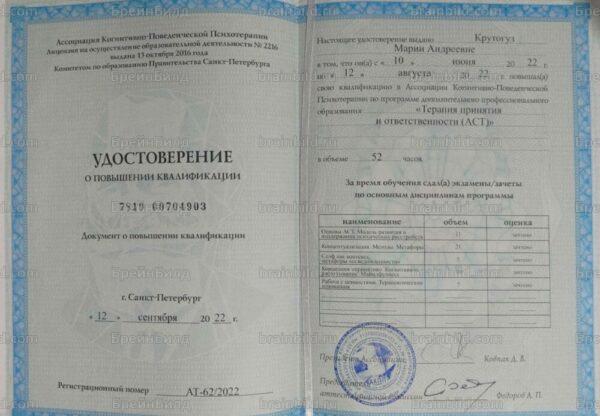 Ассоциация Когнитивно-Поведенческой Психотерапии
Лицензия на осуществление образовательной деятельности № 2216
выдана 13 октября 2016 года
Комитетом по образованию Правительства Санкт-Петербурга
УДОСТОВЕРЕНИЕ
О ПОВЫШЕНИИ КВАЛИФИКАЦИИ
7819 00704903
Документ о повышении квалификации
г. Санкт-Петербург
« 12 » сентября 20 22 г.
Регистрационный номер АТ-62/2022
Настоящее удостоверение выдано Крутогуз
Марии Андреевне
в том, что он(а) с « 10 » июня 20 22 г.
по « 12 » августа 20 22 г. повышал(а)
свою квалификацию в Ассоциации Когнитивно-Поведенческой
Психотерапии по программе дополнительного профессионального
образования «Терапия принятия
и ответственности (ACT)»
в объеме 52 часов.
За время обучения сдал(а) экзамены/зачеты
по основным дисциплинам программы
наименование объем оценка
Модель развития и
зачтено
Концептуализация. Метафоры 21 зачтено
зачтено
зачтено
Работа с ценностями. зачтено
Ассоциации Ковпак Д. В.
Федоров А. П.
БрейнБилд
brainbild.com